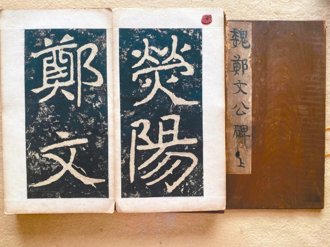 滎陽
鄭文
魏鄭文公碑上